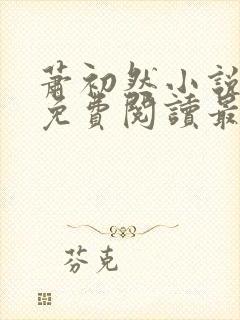 蕭初然小說
免費閱讀最
芬克